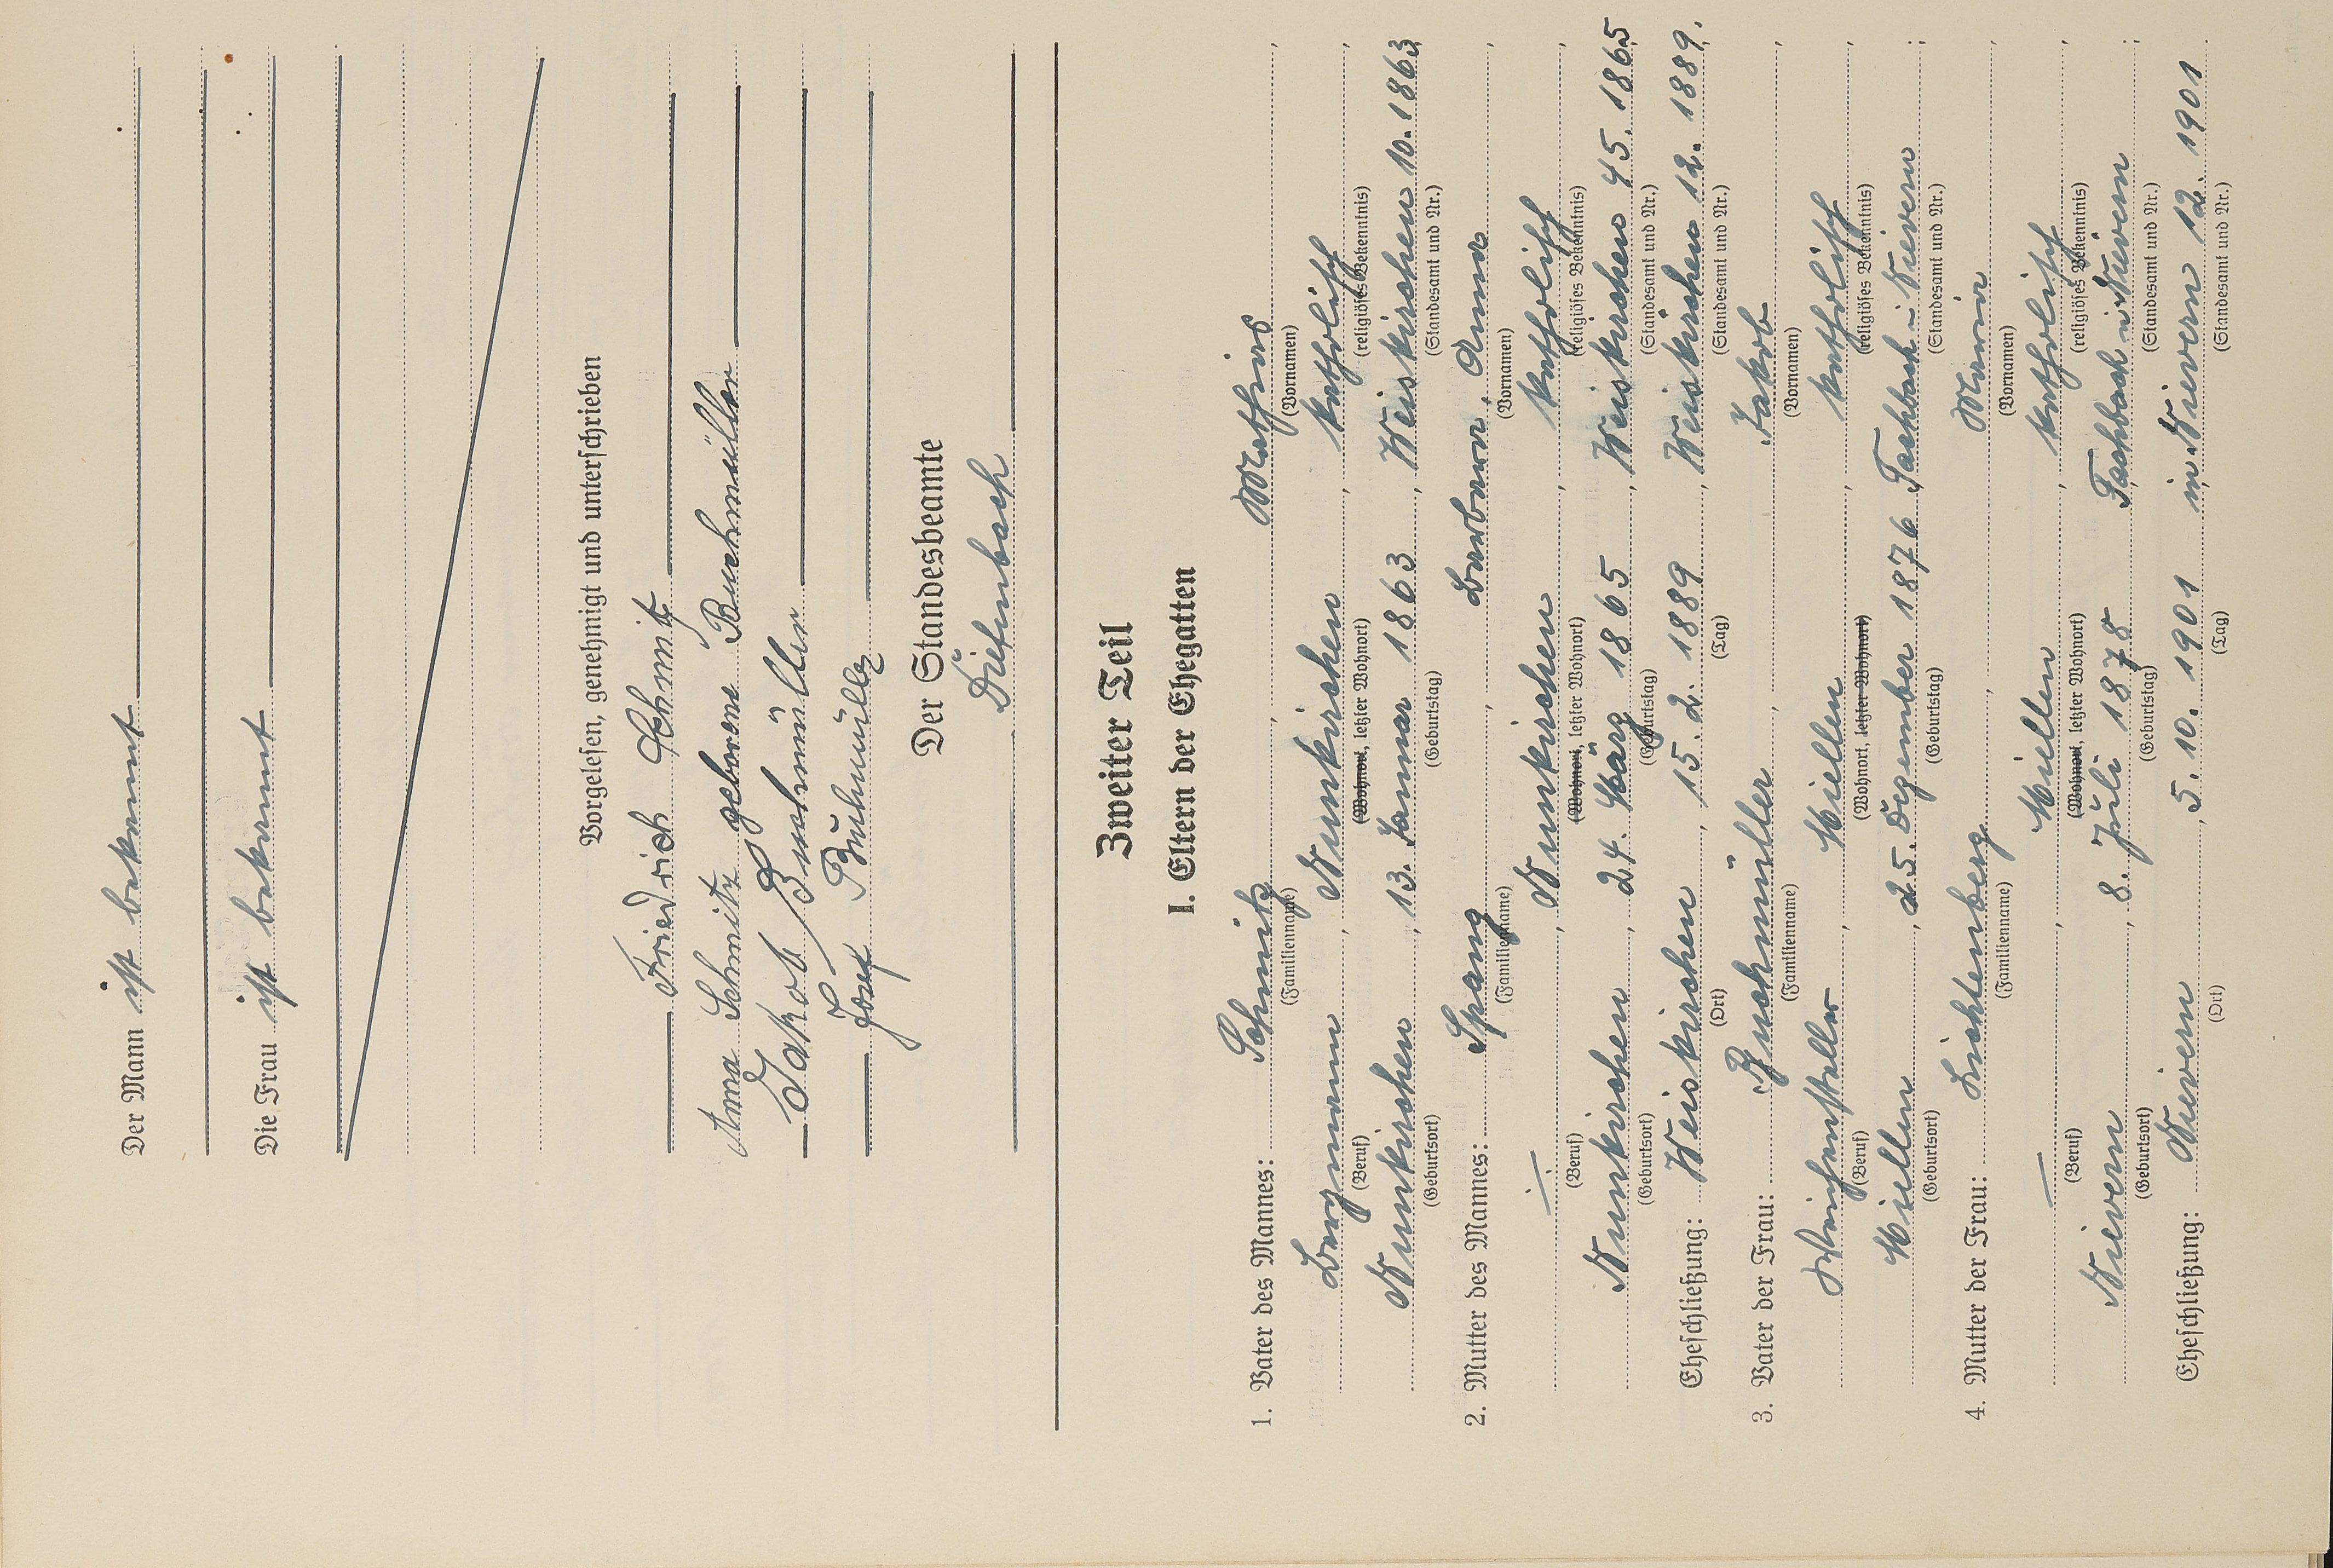 Der Mann ist bekannt
Die Frau ist bekannt
Vorgelesen, genehmigt und unterschrieben
Friedrich Schmitz
Anna Schmitz geborene Buchmüller
Jakob Buchmüller
Josef Buchmüller
Der Standesbeamte
Diefenbach
Zweiter Teil
I. Eltern der Ehegatten
1. Vater des Mannes: Schmitz, Mathias,
(Familienname) (Vornamen)
Bergmann, Nunkirchen, katholisch,
(Beruf) (Wohnort, letzter Wohnort) (religiöses Bekenntnis)
Nunkirchen, 13. Januar 1863, Weiskirchen 10. 1863;
(Geburtsort) (Geburtstag) (Standesamt und Nr.)
2. Mutter des Mannes: Spang, Barbara, Anna,
(Familienname) (Vornamen)
÷, Nunkirchen, katholisch,
(Beruf) (Wohnort, letzter Wohnort) (religiöses Bekenntnis)
Nunkirchen, 24. März 1865, Weiskirchen 45. 1865;
(Geburtsort) (Geburtstag) (Standesamt und Nr.)
Eheschließung: Weiskirchen, 15. 2. 1889, Weiskirchen 12. 1889.
(Ort) (Tag) (Standesamt und Nr.)
3. Vater der Frau: Buchmüller, Jakob,
(Familienname) (Vornamen)
Weichensteller, Miellen, katholisch,
(Beruf) (Wohnort, letzter Wohnort) (religiöses Bekenntnis)
Miellen, 25. Dezember 1876, Fachbach-Nievern;
(Geburtsort) (Geburtstag) (Standesamt und Nr.)
4. Mutter der Frau: Lichtenberg, Maria,
(Familienname) (Vornamen)
—, Miellen, katholisch,
(Beruf) (Wohnort, letzter Wohnort) (religiöses Bekenntnis)
Nievern, 8. Juli 1878, Fachbach Nievern;
(Geburtsort) (Geburtstag) (Standesamt und Nr.)
Eheschließung: Nievern, 5. 10. 1901, in Nievern 12. 1901.
(Ort) (Tag) (Standesamt und Nr.)